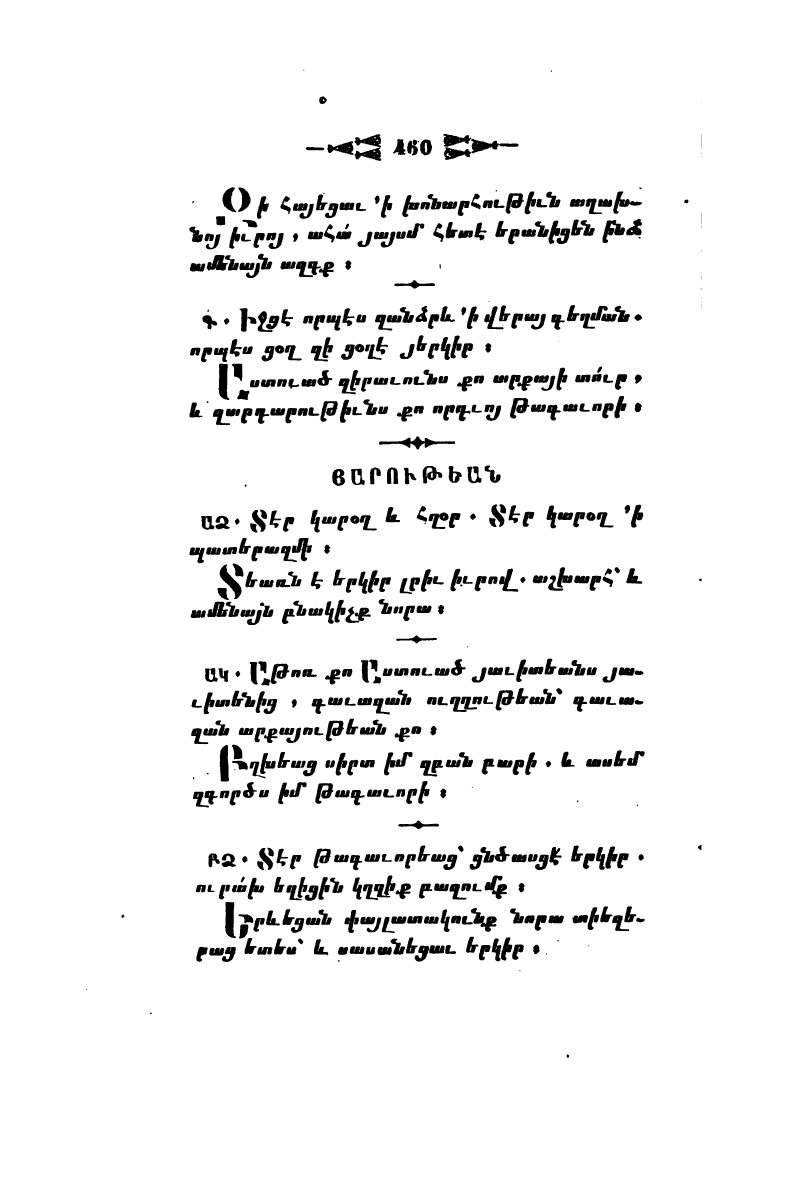 460
Զի հայեցաւ ՚ի խոնարհութիւն աղախ-
նոյ իւրոյ, ահա՛ յայսմ հետէ երանիցեն ինձ
ամենայն ազգք։
Գ. Իջցէ որպէս զանձրև ՚ի վերայ գեղման.
որպէս ցօղ զի ցօղէ յերկիր։
Աստուած զիրաւունս քո արքայի տո՛ւր,
և զարդարութիւնս քո որդւոյ թագաւորի։
ՅԱՐՈՒԹԵԱՆ
ԱՁ. Տէր կարօղ և հզօր. Տէր կարօղ ՚ի
պատերազմի։
Տեառն է երկիր լրիւ իւրով. աշխարհ՝ և
ամենայն բնակիչք նորա։
ԱԿ. Աթոռ քո Աստուած յաւիտեանս յա-
ւիտենից, գաւազան ուղղութեան՝ գաւա-
զան արքայութեան քո։
Բղխեաց սիրտ իմ զբան բարի. և ասեմ
զգործս իմ թագաւորի։
ԲՁ. Տէր թագաւորեաց՝ ցնծասցէ երկիր.
ուրա՛խ եղիցին կղզիք բազումք։
Երևեցան փայլատակունք նորա տիեզե-
րաց ետես՝ և սասանեցաւ երկիր։